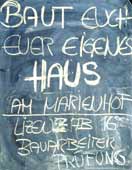 BAUT EUCH
EUER EIGENES
HAUS
AM MARIENHOF
16
BAUARBEITER
PRÜFUNG